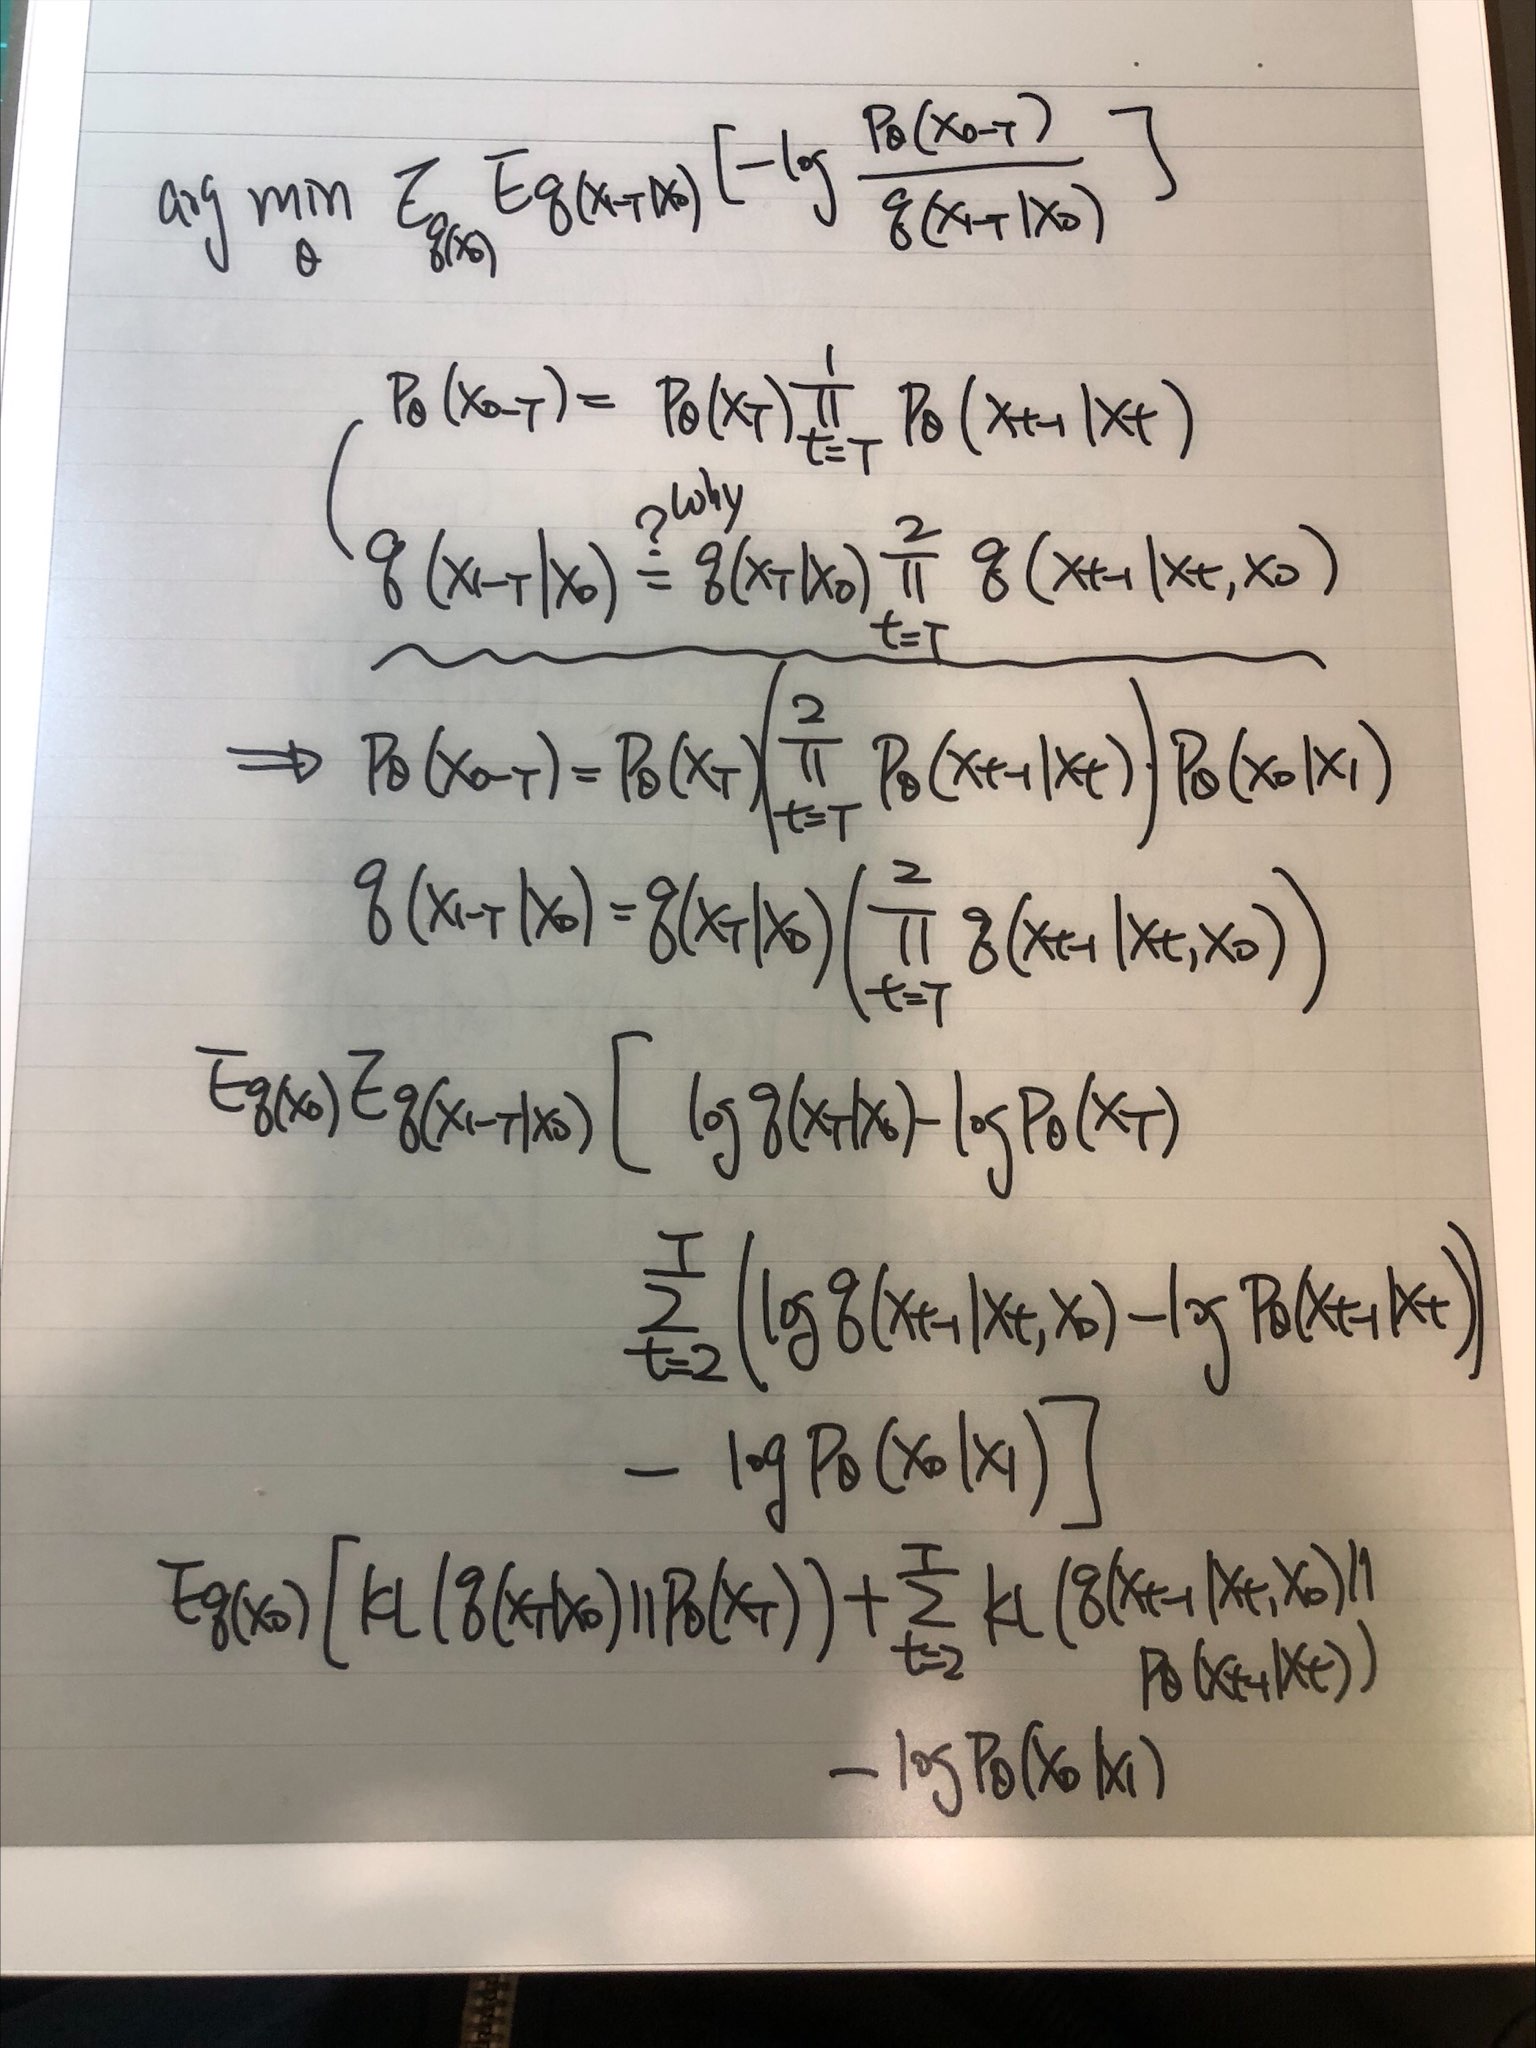 arg min_θ E_q(x₀) E_q(x₁₋T|x₀) [ -log Pθ(x₀₋T) / q(x₁₋T|x₀) ]
Pθ(x₀₋T) = Pθ(x_T) ∏_{t=T}^{1} Pθ(x_{t-1}|x_t)
? why
q(x₁₋T|x₀) = q(x_T|x₀) ∏_{t=T}^{2} q(x_{t-1}|x_t, x₀)
⇒ Pθ(x₀₋T) = Pθ(x_T) ( ∏_{t=T}^{2} Pθ(x_{t-1}|x_t) ) · Pθ(x₀|x₁)
q(x₁₋T|x₀) = q(x_T|x₀) ( ∏_{t=T}^{2} q(x_{t-1}|x_t, x₀) )
E_q(x₀) E_q(x₁₋T|x₀) [ log q(x_T|x₀) - log Pθ(x_T)
∑_{t=2}^{T} ( log q(x_{t-1}|x_t, x₀) - log Pθ(x_{t-1}|x_t) )
- log Pθ(x₀|x₁) ]
E_q(x₀) [ KL ( q(x_T|x₀) || Pθ(x_T) ) + ∑_{t=2}^{T} KL ( q(x_{t-1}|x_t, x₀) ||
Pθ(x_{t-1}|x_t) )
- log Pθ(x₀|x₁)